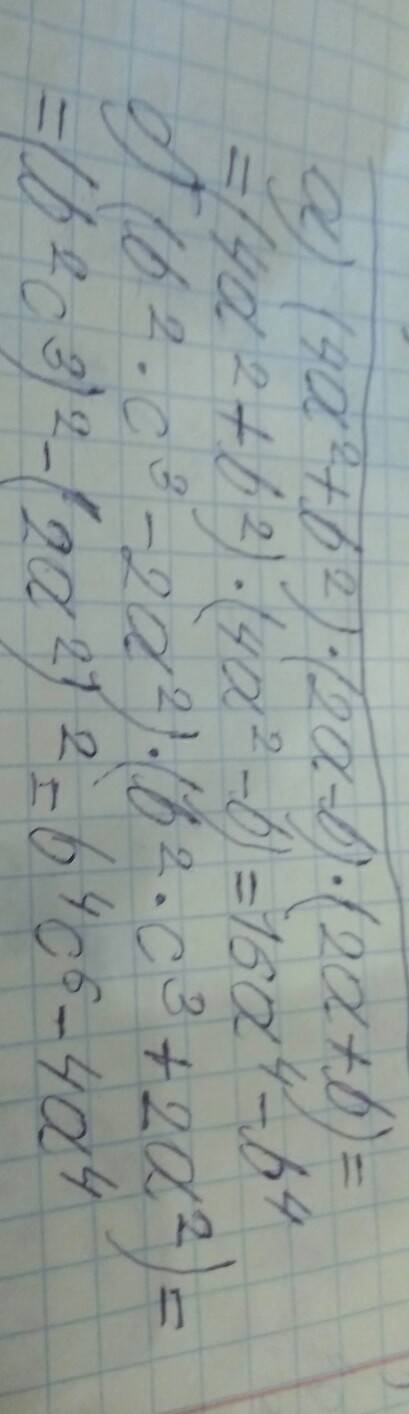 а) (4a²+b²)·(2a-b)·(2a+b)=
=(4a²+b²)·(4a²-b)=16a⁴-b⁴
б) (b²·c³-2a²)·(b²·c³+2a²)=
=(b²c³)²-(2a²)²=b⁴c⁶-4a⁴